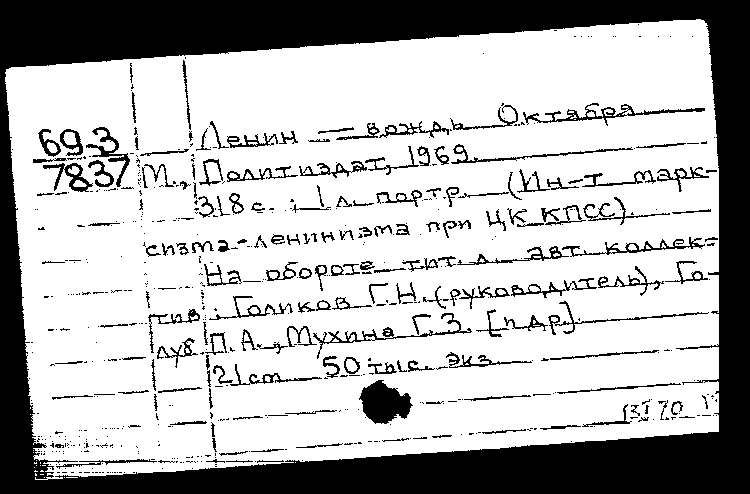 69-3
7837
Ленин — вождь Октября
М., Политиздат, 1969.
318 с. ; 1 л. портр. (Ин-т марк-
сизма-ленинизма при ЦК КПСС).
На обороте тит. л. авт. коллек-
тив : Голиков Г.Н. (руководитель), Го-
луб П. А., Мухина Г. З. [и др].
21 cm 50 тыс. экз